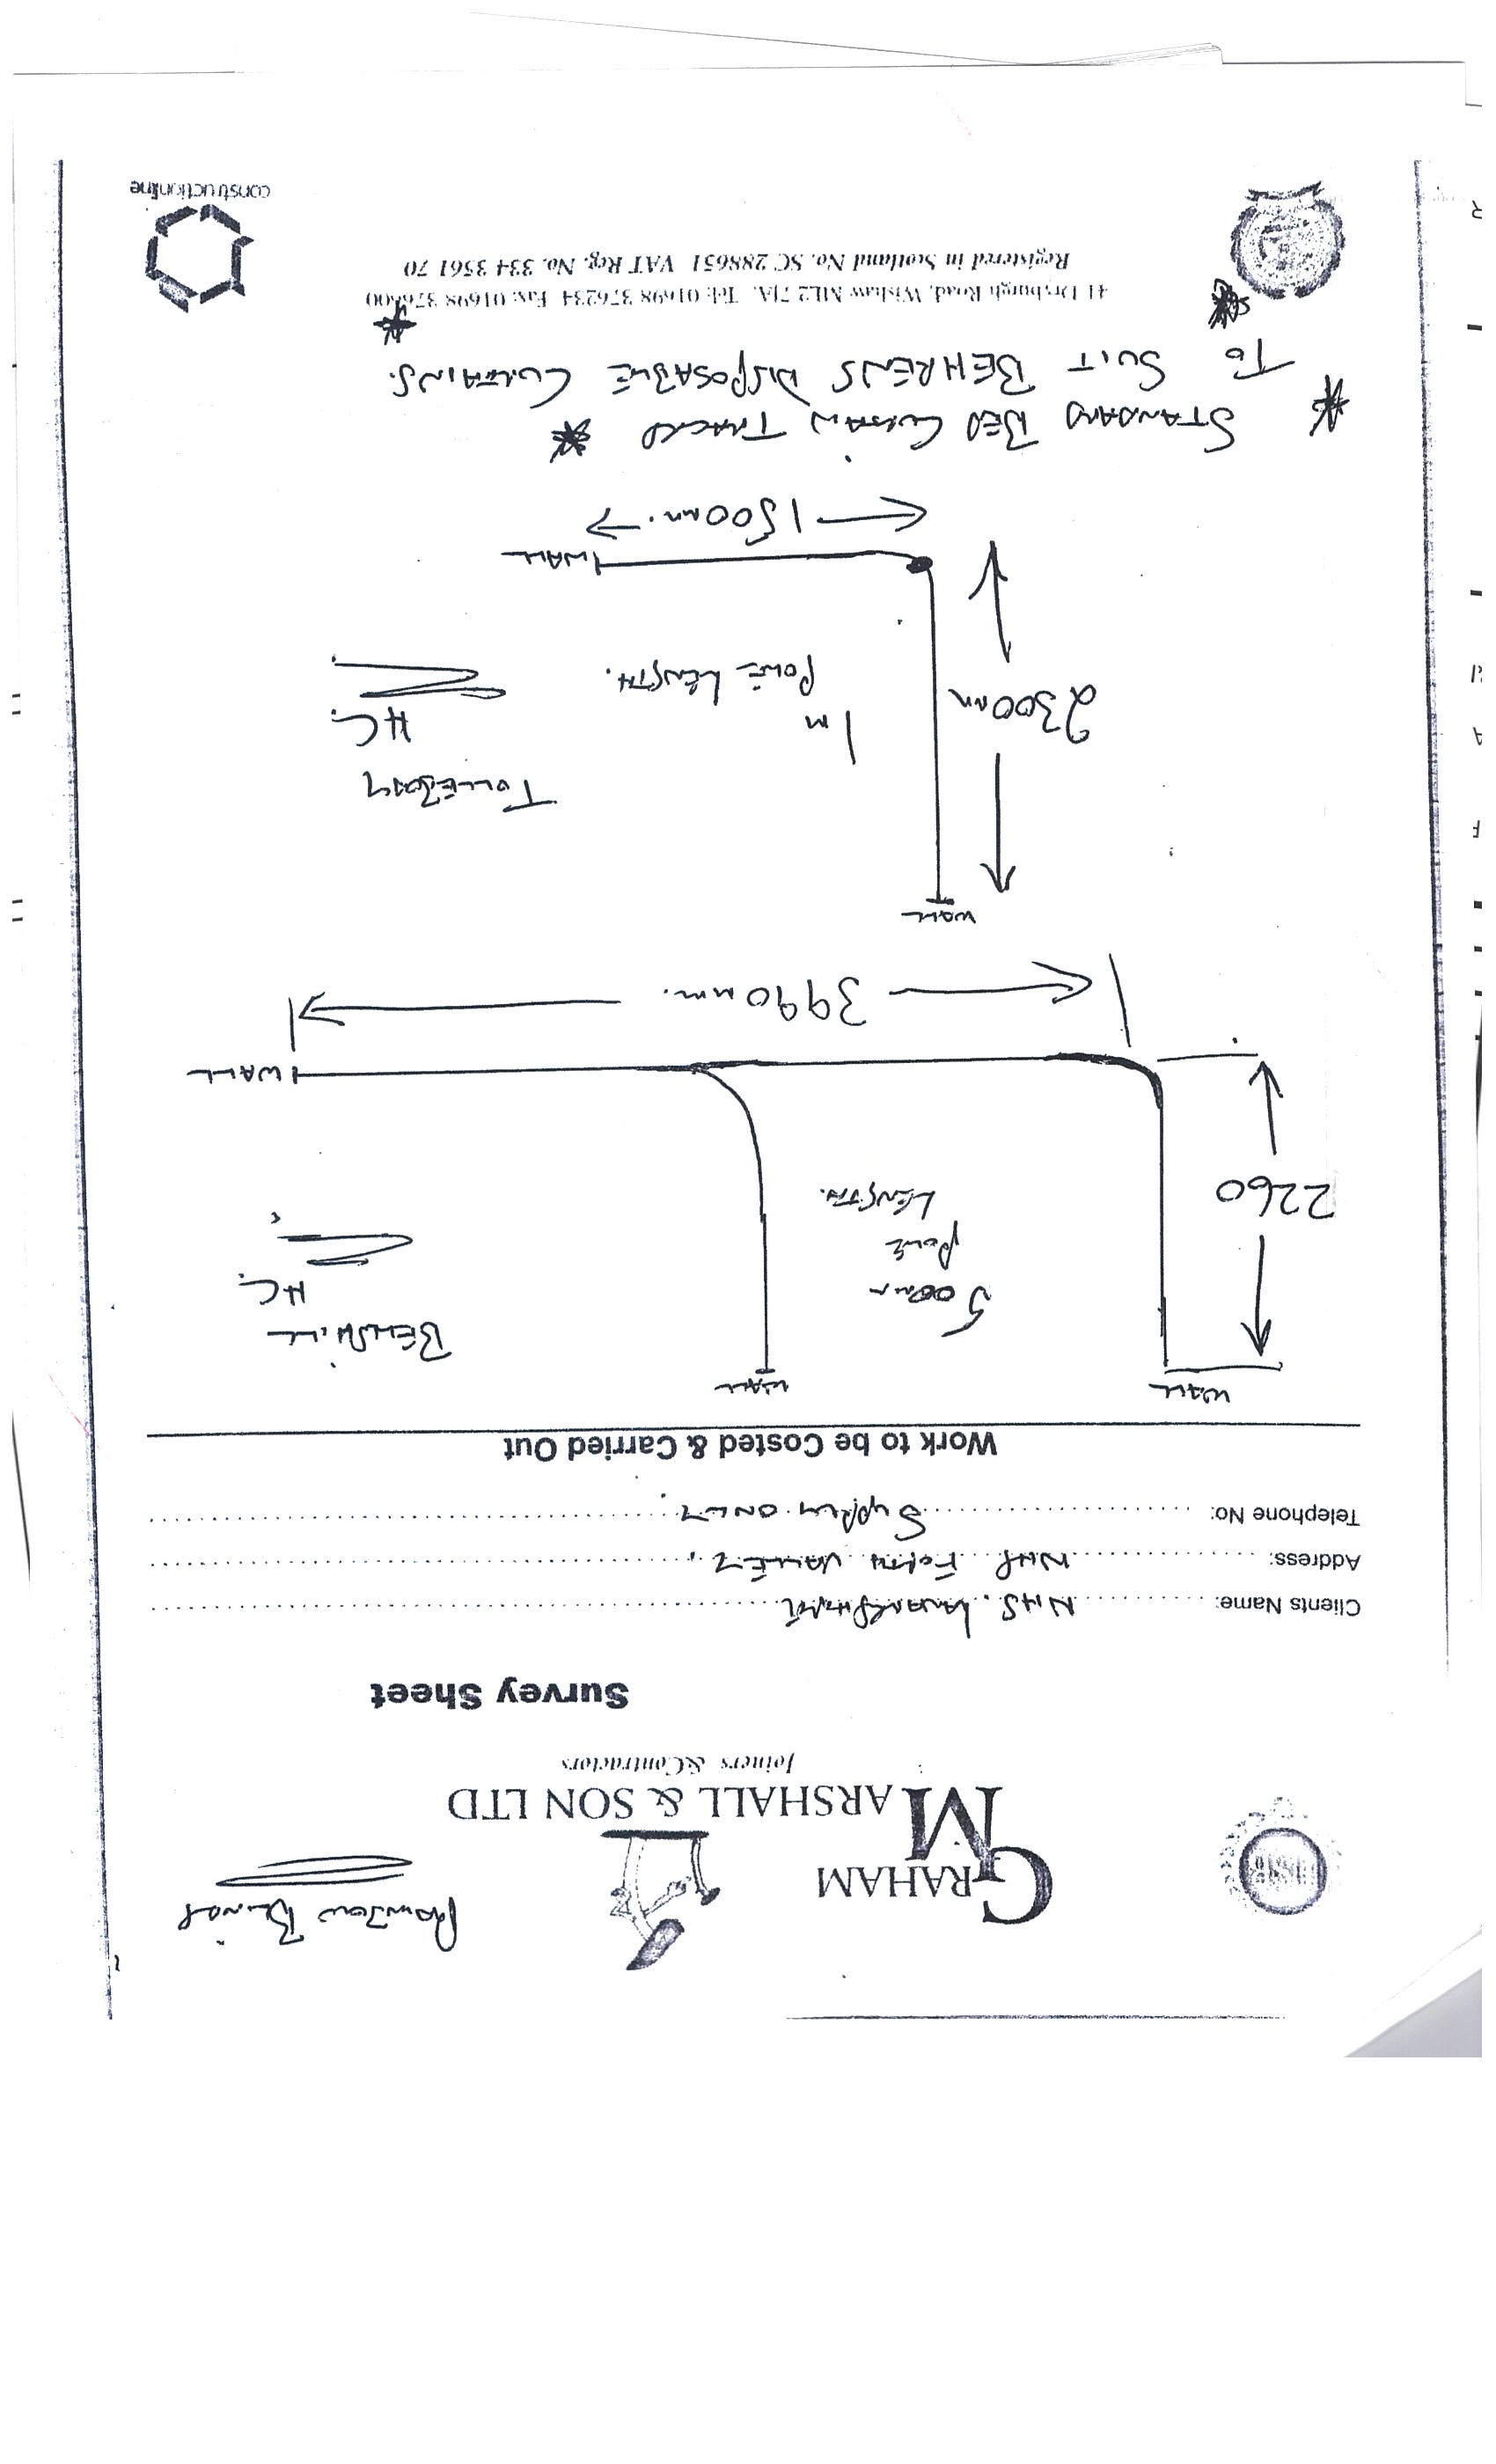 GRAHAM
MARSHALL & SON LTD
Joiners & Contractors
Survey Sheet
Clients Name: NHS. Lanarkshire
Address: NHS Forth Valley,
Telephone No: Supply only.
Work to be Costed & Carried Out
WALL
WALL
BELLSHILL
H.C.
500mm
POLE
LENGTH.
2260
WALL
3990mm.
WALL
H.C.
1m
POLE LENGTH.
2300mm
WALL
1500mm.
* STANDARD BED CURTAIN TRACKS *
TO SUIT BEHRENS DISPOSABLE CURTAINS.
41 Dryburgh Road, Wishaw ML2 7JA. Tel: 01698 376234 Fax: 01698 376800
Registered in Scotland No. SC 288651 VAT Reg. No. 334 3561 70
constructionline